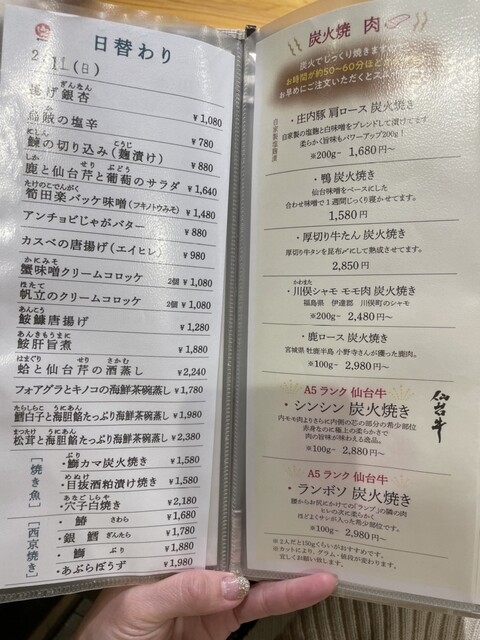 日替わり
2 11 (日)
揚げ銀杏 ぎんなん ¥1,080
烏賊の塩辛 ¥780
鰊の切り込み(麹漬け) にしん こうじ ¥880
鹿と仙台芹と葡萄のサラダ しか せり ぶどう ¥1,640
筍田楽バッケ味噌(フキノトウみそ) たけのこでんがく ¥1,480
アンチョビじゃがバター ¥880
カスベの唐揚げ(エイヒレ) ¥980
蟹味噌クリームコロッケ かにみそ 2個 ¥1,080
帆立のクリームコロッケ ほたて 2個 ¥1,080
鮟鱇唐揚げ あんこう ¥1,280
鮟肝旨煮 あんきもうまに ¥1,880
蛤と仙台芹の酒蒸し はまぐり せり さかむ ¥2,240
フォアグラとキノコの海鮮茶碗蒸し ¥1,780
鱈白子と海胆餡たっぷり海鮮茶碗蒸し たらしらこ うにあん ¥1,980
松茸と海胆餡たっぷり海鮮茶碗蒸し まつたけ うにあん ¥2,380
[焼き魚]
・鰤カマ炭火焼き ぶり ¥1,580
・目抜酒粕漬け焼き めぬけ ¥1,580
・穴子白焼き あなご しらや ¥2,180
[西京焼き]
・鰆 さわら ¥1,680
・銀鱈 ぎんたら ¥1,780
・鰤 ぶり ¥1,880
・あぶらぼうず ¥1,980
炭火焼 肉
炭火でじっくり焼きます
お時間が約50~60分ほど
お早めにご注文いただくとスム
自家製塩麹漬
・庄内豚 肩ロース 炭火焼き
自家製の塩麹と白味噌をブレンドして漬けます
柔らかく旨味もパワーアップ200g!
※200g~ 1,680円~
・鴨 炭火焼き
仙台味噌をベースにした
合わせ味噌で1週間じっくり寝かせてます。
1,580円
・厚切り牛たん 炭火焼き
厚切り牛タンを昆布〆にして熟成させてます。
2,850円
・川俣シャモ モモ肉 炭火焼き かわまた
福島県 伊達郡 川俣町のシャモ
※200g~ 2,480円~
・鹿ロース 炭火焼き
宮城県 牡鹿半島 小野寺さんが獲った鹿肉。
※100g~ 2,980円~
仙台牛
A5 ランク 仙台牛
・シンシン 炭火焼き
内モモ肉よりさらに内側の芯の部分の希少部位
赤身なのに極上の柔らかさで
肉の旨味が味わえる逸品。
※100g~ 2,880円~
A5 ランク 仙台牛
・ランボソ 炭火焼き
腰からお尻にかけての「ランプ」の隣の肉
ヒレの次に柔らかく
ほどよくサシが入った希少部位です。
※100g~ 2,980円~
※2人だと150gくらいがおすすめです。
※カットにより、グラム・値段が変わります。
宜しくお願い致します。